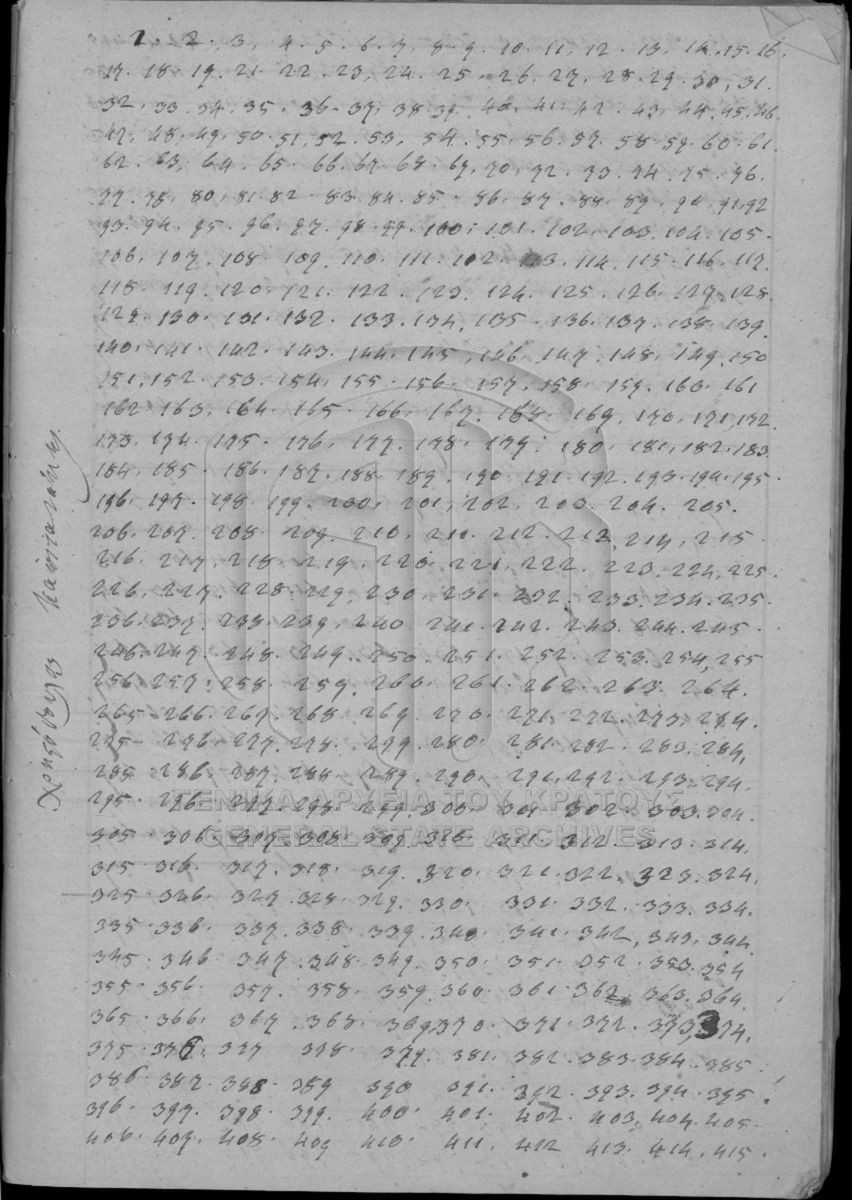 1, 2, 3, 4. 5. 6. 7, 8. 9. 10. 11, 12. 13. 14. 15. 16.
17. 18. 19. 21. 22. 23, 24. 25. 26. 27. 28. 29. 30, 31.
32. 33. 34. 35. 36. 37. 38. 39. 40. 41. 42. 43, 44. 45. 46.
47. 48. 49. 50. 51, 52. 53, 54. 55. 56. 57. 58. 59. 60. 61.
62. 63, 64. 65. 66. 67. 68. 69, 70, 72. 73. 74. 75. 76.
77. 78. 80, 81. 82. 83. 84. 85. 86. 87. 88. 89. 90, 91. 92
93. 94. 95. 96. 97. 98. 99. 100. 101. 102. 103. 104. 105.
106. 107. 108. 109. 110. 111. 102. 113. 114. 115. 116. 117.
118. 119. 120. 121. 122. 123. 124. 125. 126. 127. 128.
129. 130. 131. 132. 133. 134. 135. 136. 137. 138. 139.
140. 141. 142. 143. 144. 145, 146. 147. 148. 149. 150
151, 152. 153. 154. 155. 156. 157. 158. 159. 160. 161
162. 163. 164. 165. 166. 167. 168. 169, 170. 171, 172.
173. 174. 175. 176. 177. 178. 179. 180. 181, 182. 183.
184. 185. 186. 187. 188. 189. 190. 191. 192. 193. 194. 195.
196. 197. 198. 199. 200. 201, 202. 203. 204. 205.
206. 207. 208. 209. 210. 211. 212. 213. 214, 215.
216. 217. 218. 219. 220. 221. 222. 223. 224, 225.
226, 227. 228. 229. 230. 231. 232. 233. 234. 235.
236. 237. 238. 239. 240. 241. 242. 243. 244. 245.
246. 247. 248. 249. 250. 251. 252. 253. 254, 255
256. 257. 258. 259. 260. 261. 262. 263. 264.
265. 266. 267. 268. 269. 270. 271. 272. 273. 274.
275. 276. 277. 278. 279. 280. 281. 282. 283. 284,
285. 286. 287. 288. 289. 290. 291. 292. 293. 294.
295. 296. 297. 298. 299. 300. 301. 302. 303. 304.
305. 306. 307. 308. 309. 310. 311. 312. 313. 314.
315. 316. 317. 318. 319. 320. 321. 322. 323. 324.
325. 326. 327. 328. 329. 330. 331. 332. 333. 334.
335. 336. 337. 338. 339. 340. 341. 342, 343, 344.
345. 346. 347. 348. 349. 350. 351. 352. 353. 354
355. 356. 357. 358. 359. 360. 361. 362. 363. 364.
365. 366. 367. 368. 369. 370. 371. 372. 373, 374,
375. 376. 377 378. 379. 381. 382. 383. 384. 385
386. 387. 388. 389 390 391. 392. 393. 394. 395.
396. 397. 398. 399. 400. 401. 402. 403. 404. 405.
406. 407. 408. 409 410. 411. 412 413. 414. 415.
ΓΕΝΙΚΑ ΑΡΧΕΙΑ ΤΟΥ ΚΡΑΤΟΥΣ
GENERAL STATE ARCHIVES